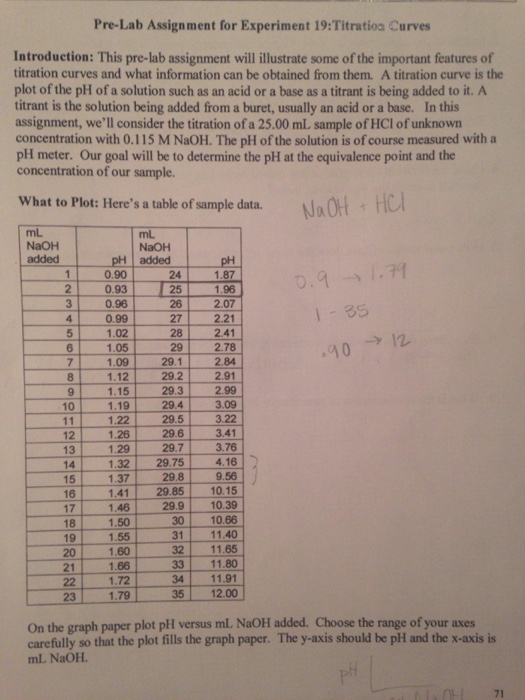 Pre-Lab Assignment for Experiment 19:Titration Curves
Introduction: This pre-lab assignment will illustrate some of the important features of
titration curves and what information can be obtained from them. A titration curve is the
plot of the pH of a solution such as an acid or a base as a titrant is being added to it. A
titrant is the solution being added from a buret, usually an acid or a base. In this
assignment, we'll consider the titration of a 25.00 mL sample of HCl of unknown
concentration with 0.115 M NaOH. The pH of the solution is of course measured with a
pH meter. Our goal will be to determine the pH at the equivalence point and the
concentration of our sample.
What to Plot: Here's a table of sample data.
NaOH + HCl
mL NaOH added pH mL NaOH added pH
1 0.90 24 1.87
2 0.93 25 1.96
3 0.96 26 2.07
4 0.99 27 2.21
5 1.02 28 2.41
6 1.05 29 2.78
7 1.09 29.1 2.84
8 1.12 29.2 2.91
9 1.15 29.3 2.99
10 1.19 29.4 3.09
11 1.22 29.5 3.22
12 1.26 29.6 3.41
13 1.29 29.7 3.76
14 1.32 29.75 4.16
15 1.37 29.8 9.56
16 1.41 29.85 10.15
17 1.46 29.9 10.39
18 1.50 30 10.66
19 1.55 31 11.40
20 1.60 32 11.65
21 1.66 33 11.80
22 1.72 34 11.91
23 1.79 35 12.00
0.9 → 1.79
1 - 35
.90 → 12
On the graph paper plot pH versus mL NaOH added. Choose the range of your axes
carefully so that the plot fills the graph paper. The y-axis should be pH and the x-axis is
mL NaOH.
pH
71